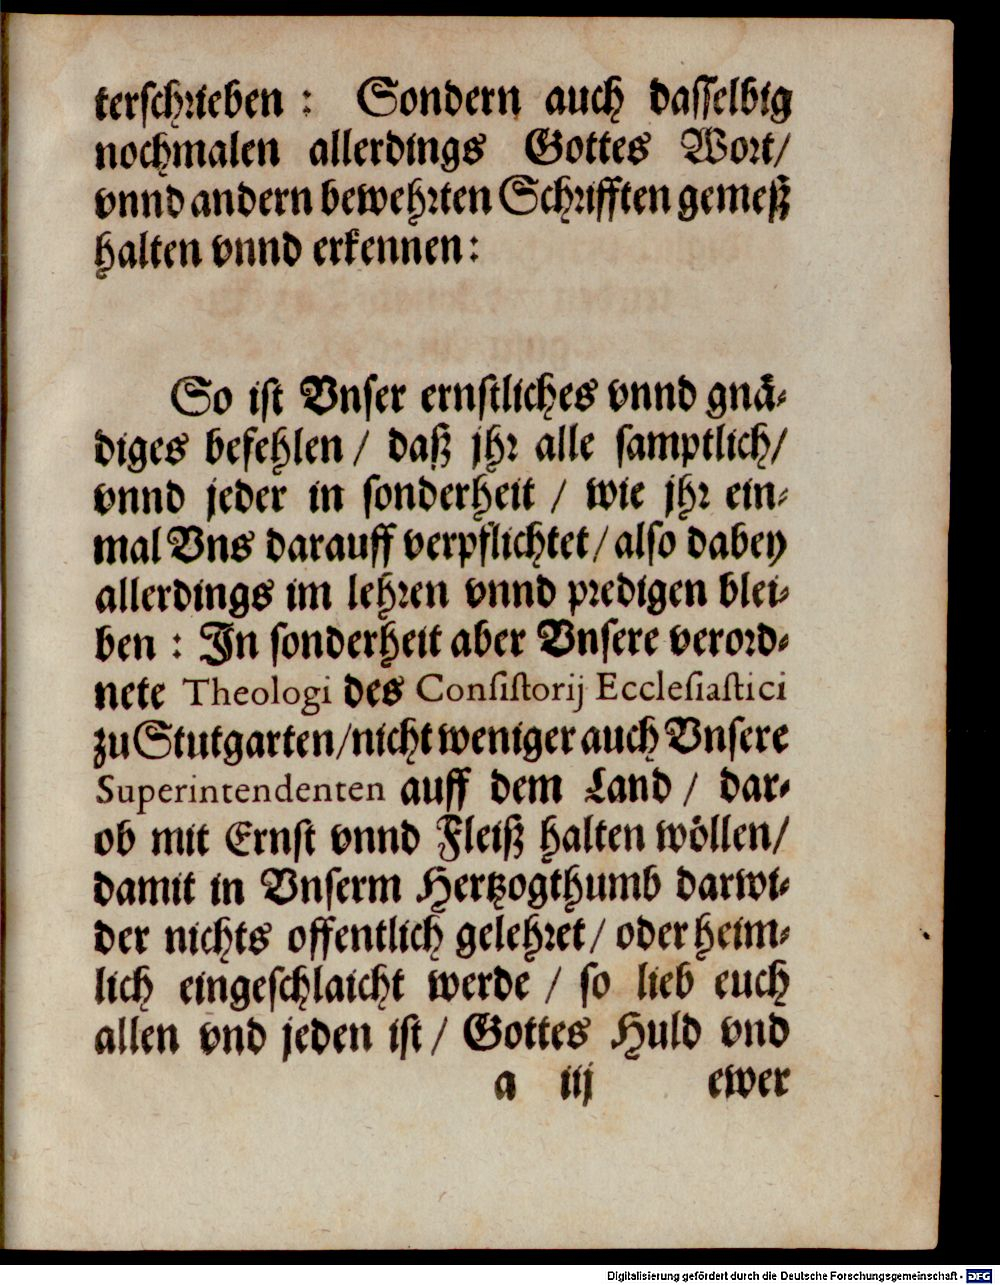 terschrieben : Sondern auch dasselbig
nochmalen allerdings Gottes Wort/
vnnd andern bewehrten Schrifften gemeß
halten vnnd erkennen:
So ist Vnser ernstliches vnnd gnä-
diges befehlen / daß jhr alle samptlich/
vnnd jeder in sonderheit / wie jhr ein-
mal Vns darauff verpflichtet/ also dabey
allerdings im lehren vnnd predigen blei-
ben : In sonderheit aber Vnsere verord-
nete Theologi des Consistorij Ecclesiastici
zu Stutgarten/nicht weniger auch Vnsere
Superintendenten auff dem Land / dar-
ob mit Ernst vnnd Fleiß halten wöllen/
damit in Vnserm Hertzogthumb darwi-
der nichts offentlich gelehret/ oder heim-
lich eingeschlaicht werde / so lieb euch
allen vnd jeden ist/ Gottes Huld vnd
a iij ewer
Digitalisierung gefördert durch die Deutsche Forschungsgemeinschaft - DFG